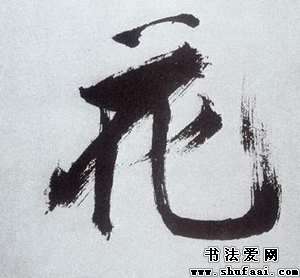 花
书法爱网
www.shufaai.com